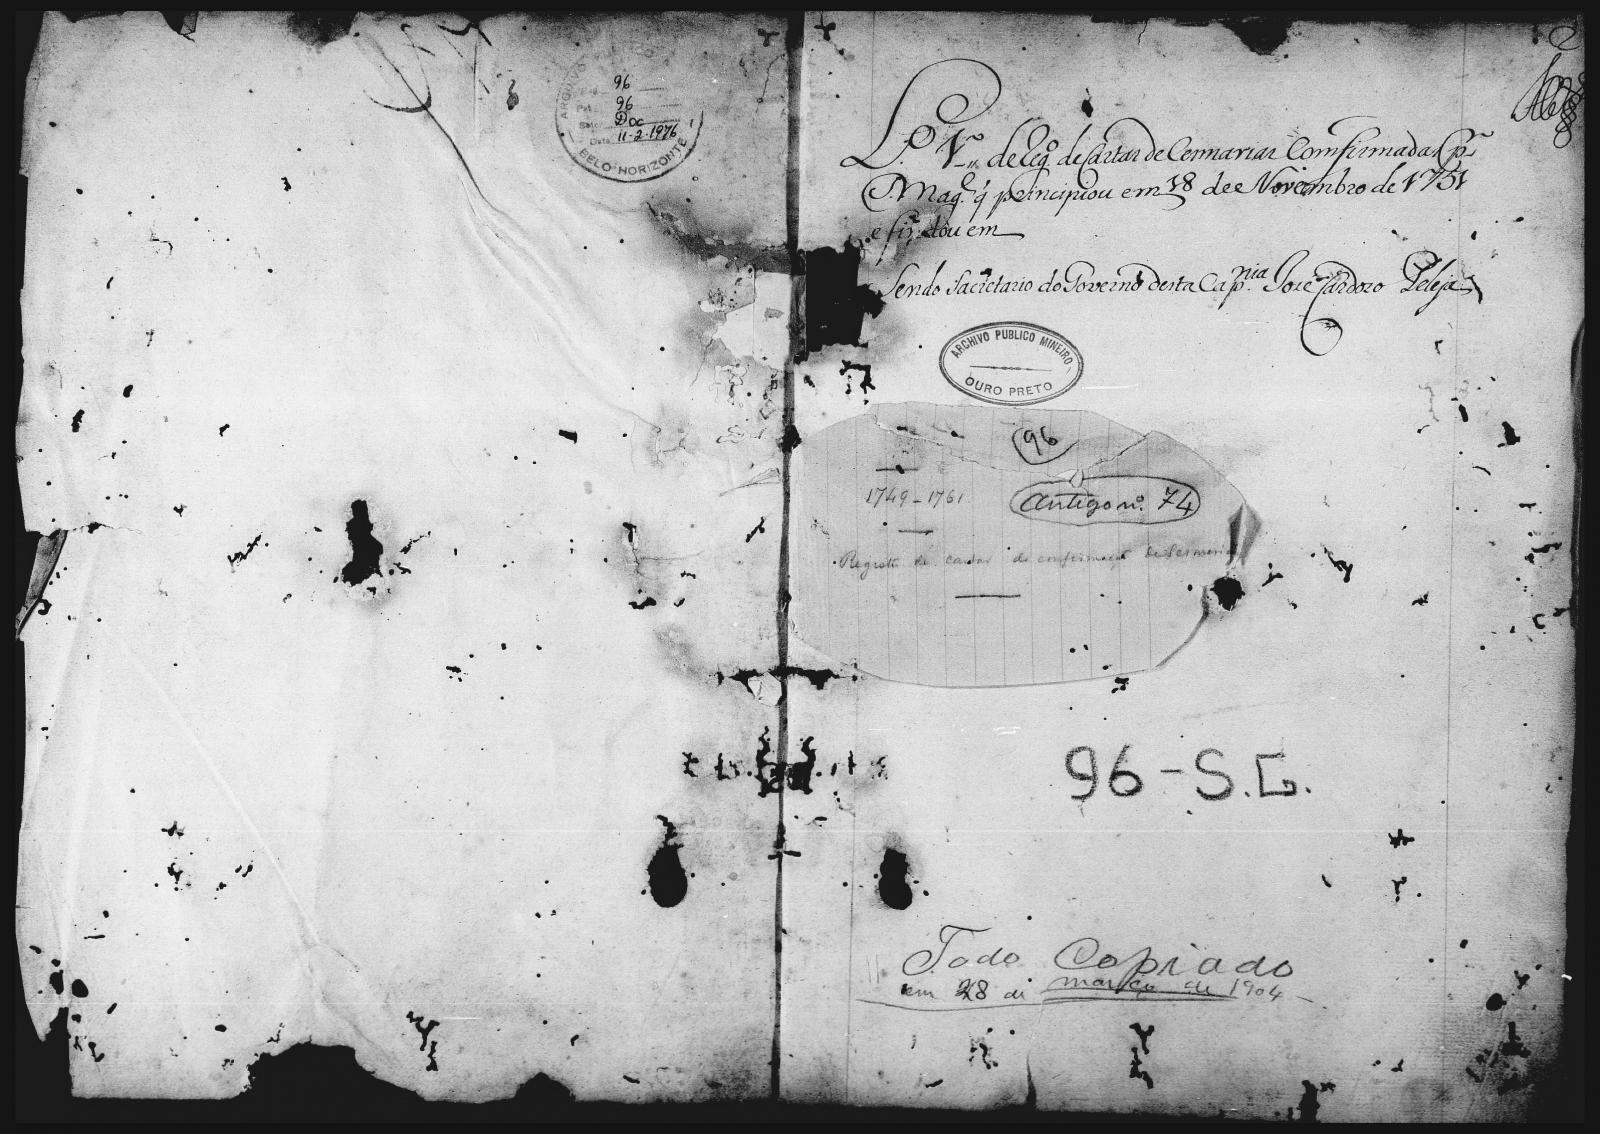 ARQUIVO PUBLICO
96
96
Doc
Data 11-2-1976
BELO HORIZONTE
L.º 1.º de Reg.º de Cartas de Cesmarias Comfirmadas p.r
S. Mag.e q̃ principiou em 18 de Novembro de 1751
e findou em
Sendo Sacretario do Governo desta Cap.nia Joze Cardozo Peleja
ARCHIVO PUBLICO MINEIRO
OURO PRETO
96
1749-1761
Antigo n.º 74
Registo de cartas de confirmação de sesmarias
96-S.G.
Todo Copiado
em 28 de março de 1904